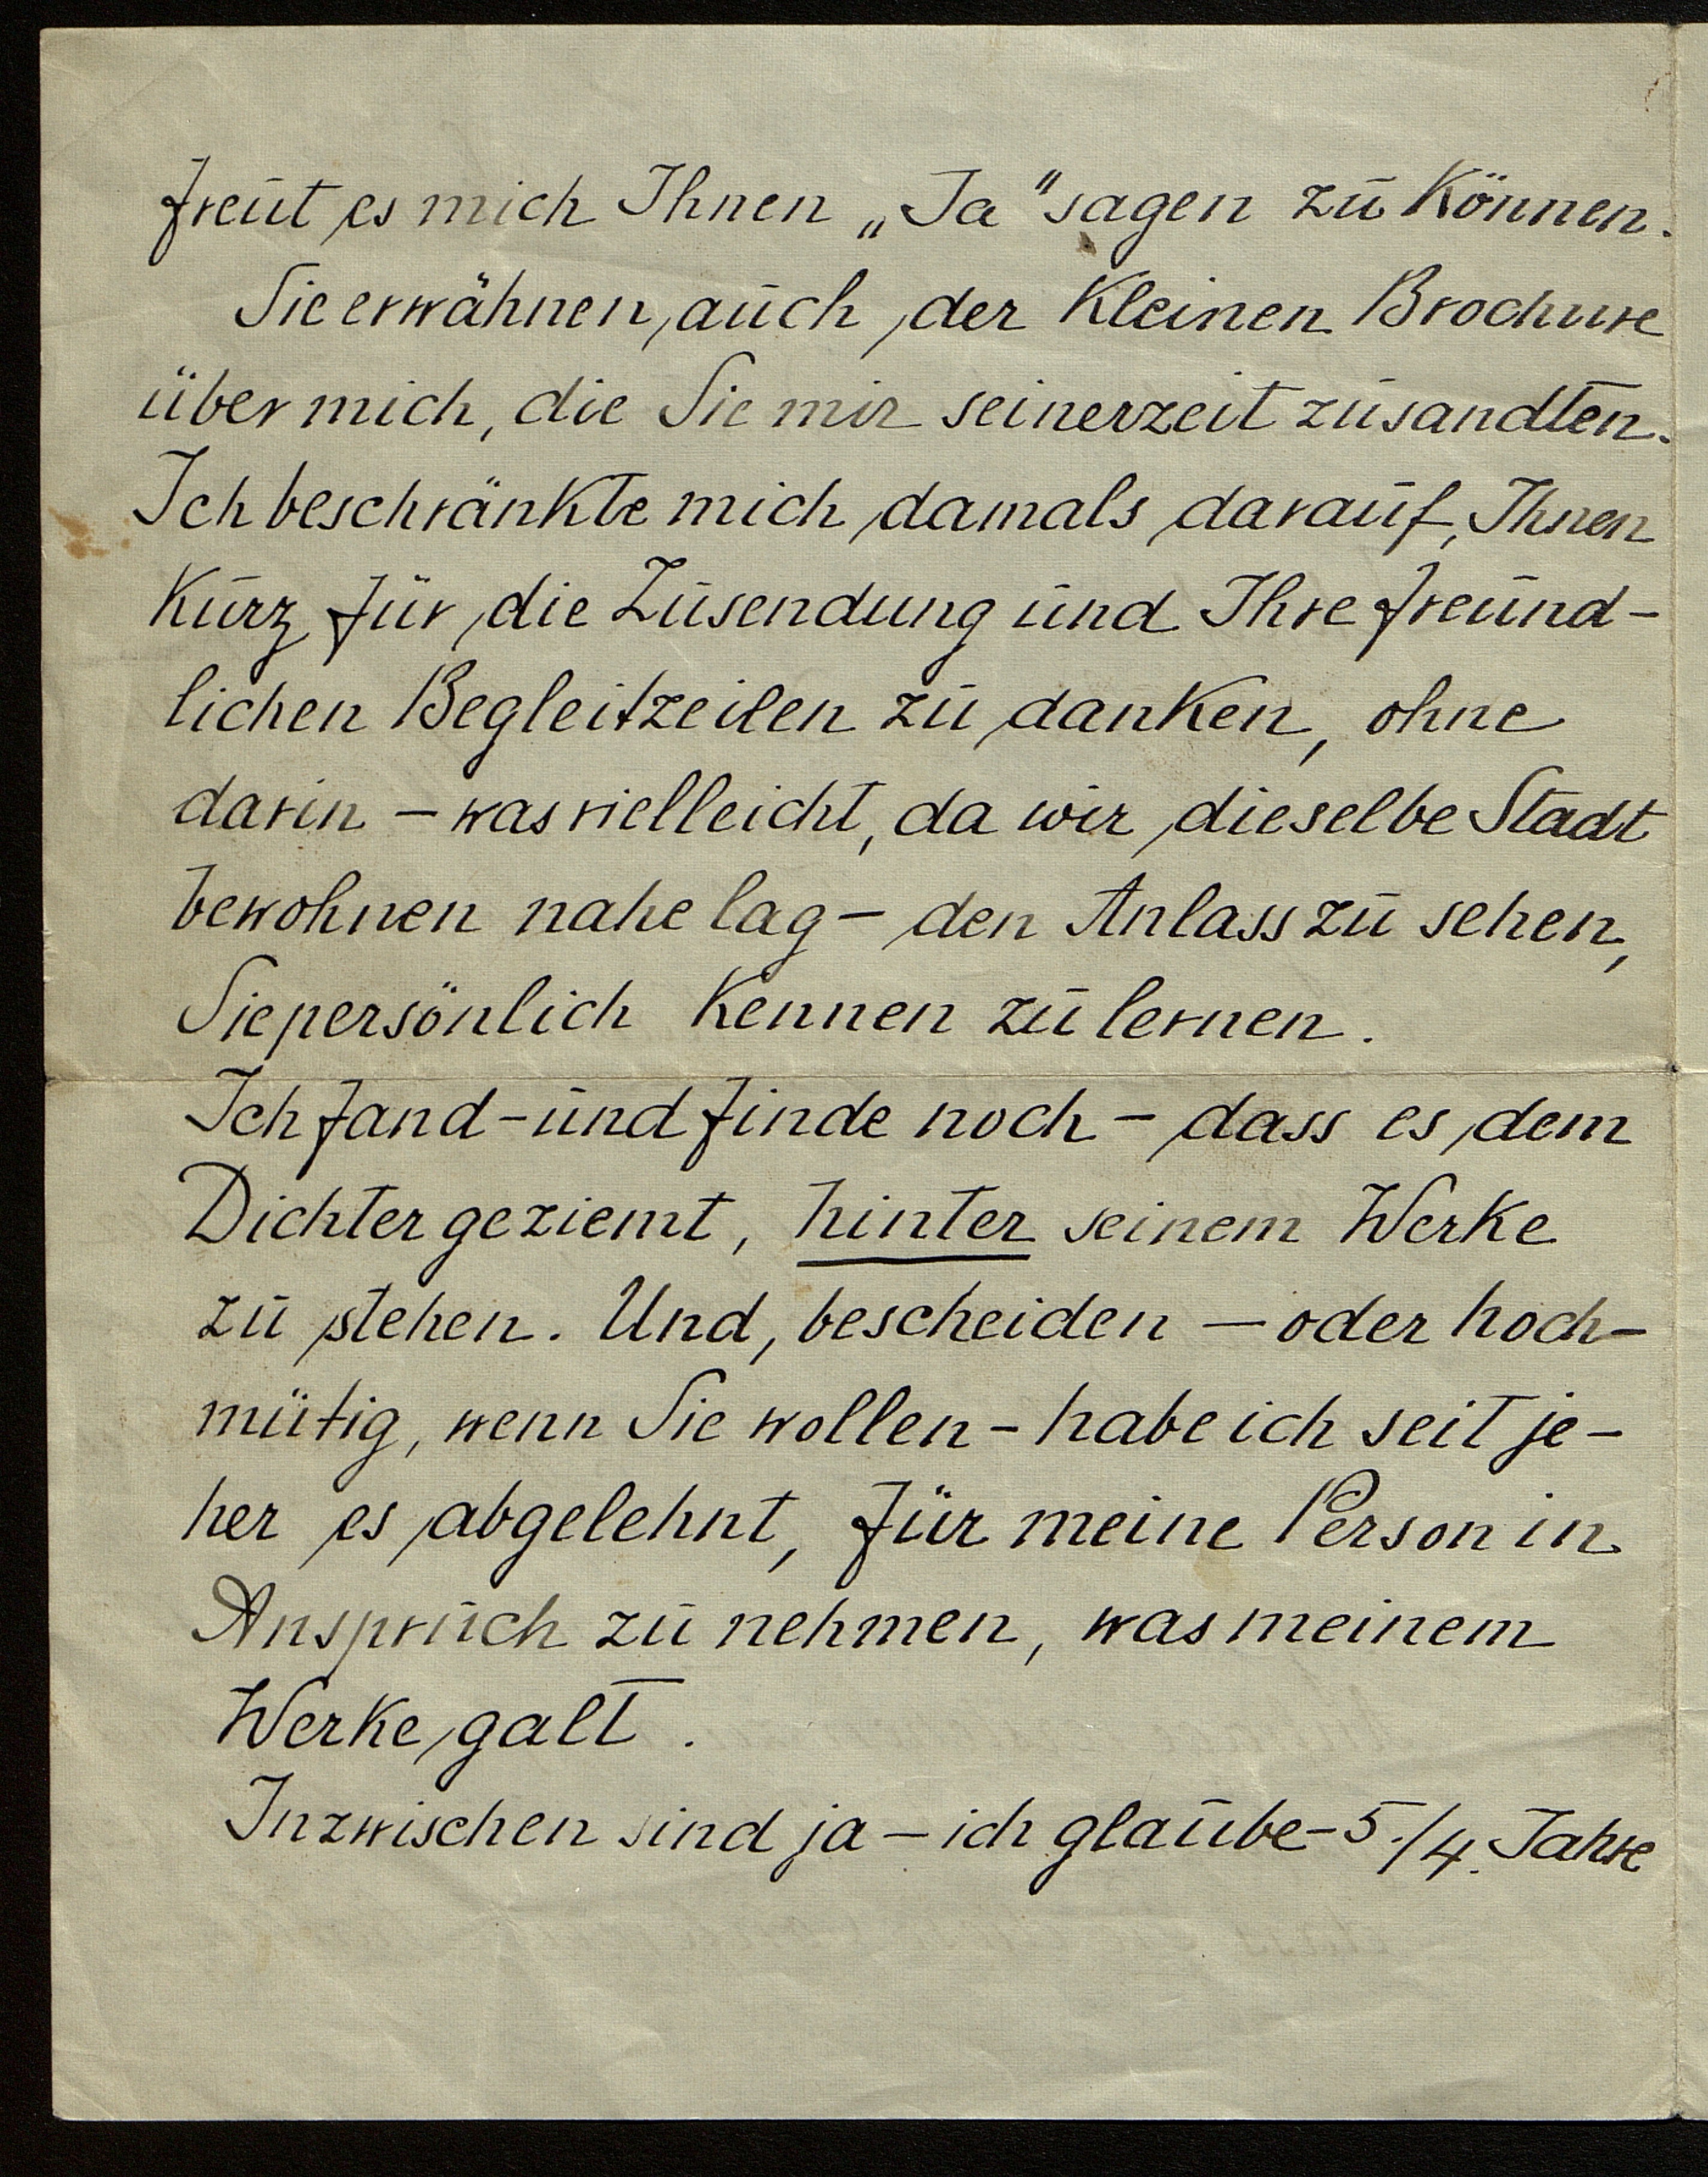 freut es mich Ihnen „Ja" sagen zu können.
Sie erwähnen auch der kleinen Brochure
über mich, die Sie mir seinerzeit zusandten.
Ich beschränkte mich damals darauf, Ihnen
kurz für die Zusendung und Ihre freund-
lichen Begleitzeilen zu danken, ohne
darin – was vielleicht, da wir dieselbe Stadt
bewohnen nahe lag – den Anlass zu sehen,
Sie persönlich kennen zu lernen.
Ich fand – und finde noch – dass es dem
Dichter geziemt, hinter seinem Werke
zu stehen. Und, bescheiden – oder hoch-
mütig, wenn Sie wollen – habe ich seit je-
her es abgelehnt, für meine Person in
Anspruch zu nehmen, was meinem
Werke galt.
Inzwischen sind ja – ich glaube – 5./4. Jahre